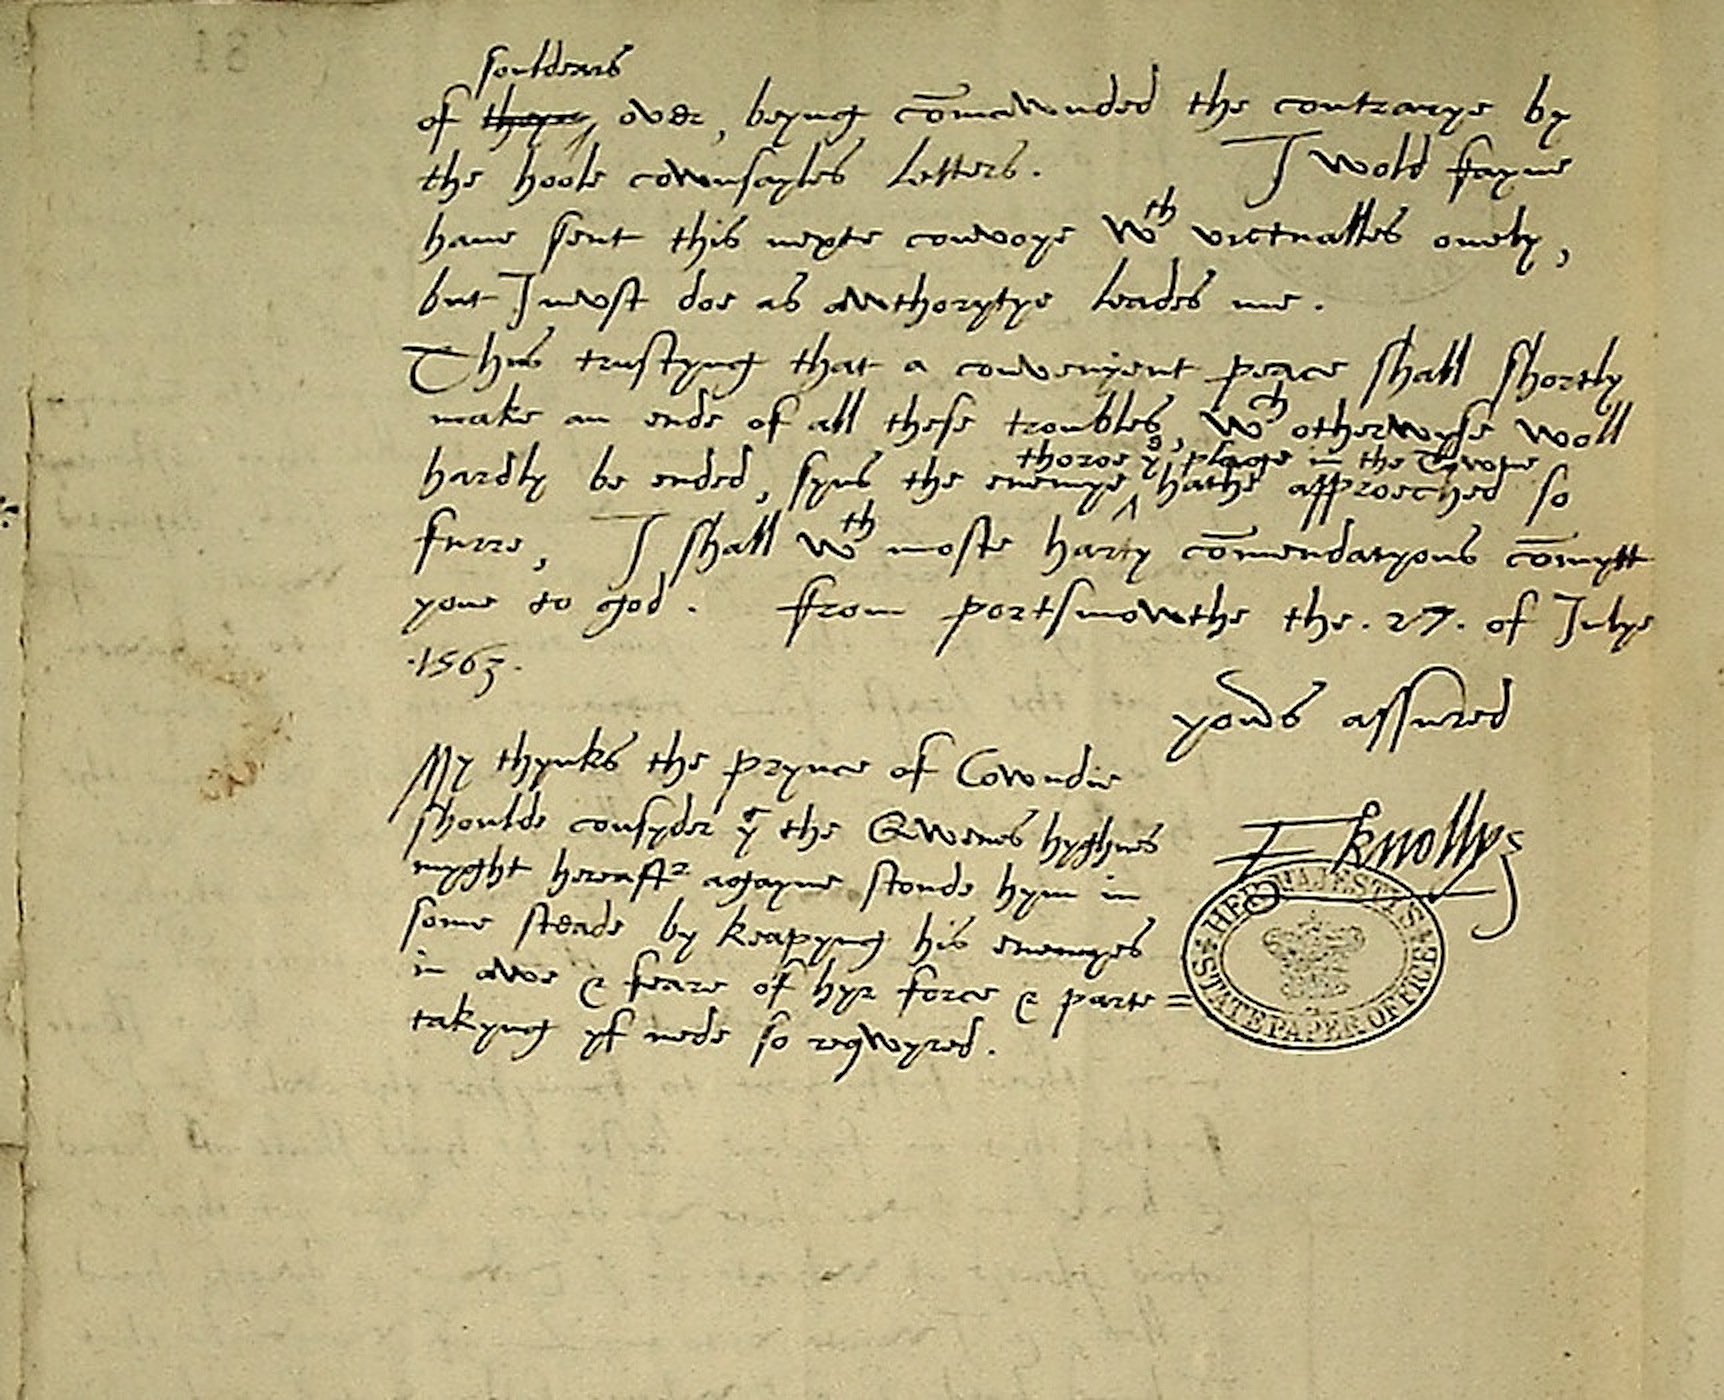 souldears
of they̶r over, beyng cōmawnded the contrarye by
the hoole cownsayles letters. I wold fayne
have sent this nexte convoye wth victualles onely,
but I must doe as awthorytye leades me.
Thus trustyng that a convenyent peace shall shortly
make an ende of all these troubles, wch otherwyse woll
thoroe ye plage in the Towne
hardly be ended, syns the enemye ^ hathe approeched so
furre, I shall wth moste harty cōmendatyons cōmytt
youe to god. ffrom portsmowthe the .27. of Julye
.1563.
yours assured
My thynks the prynce of Cowndie
shoulde consyder yt the Qwenes hyghnes
myght hereaftr agayne stonde hym in
some steade by keapyng his enemyes
in awe & feare of hyr force & parte=
takyng yf nede so reqwyred.
F knollys
HER MAJESTY'S STATE PAPER OFFICE